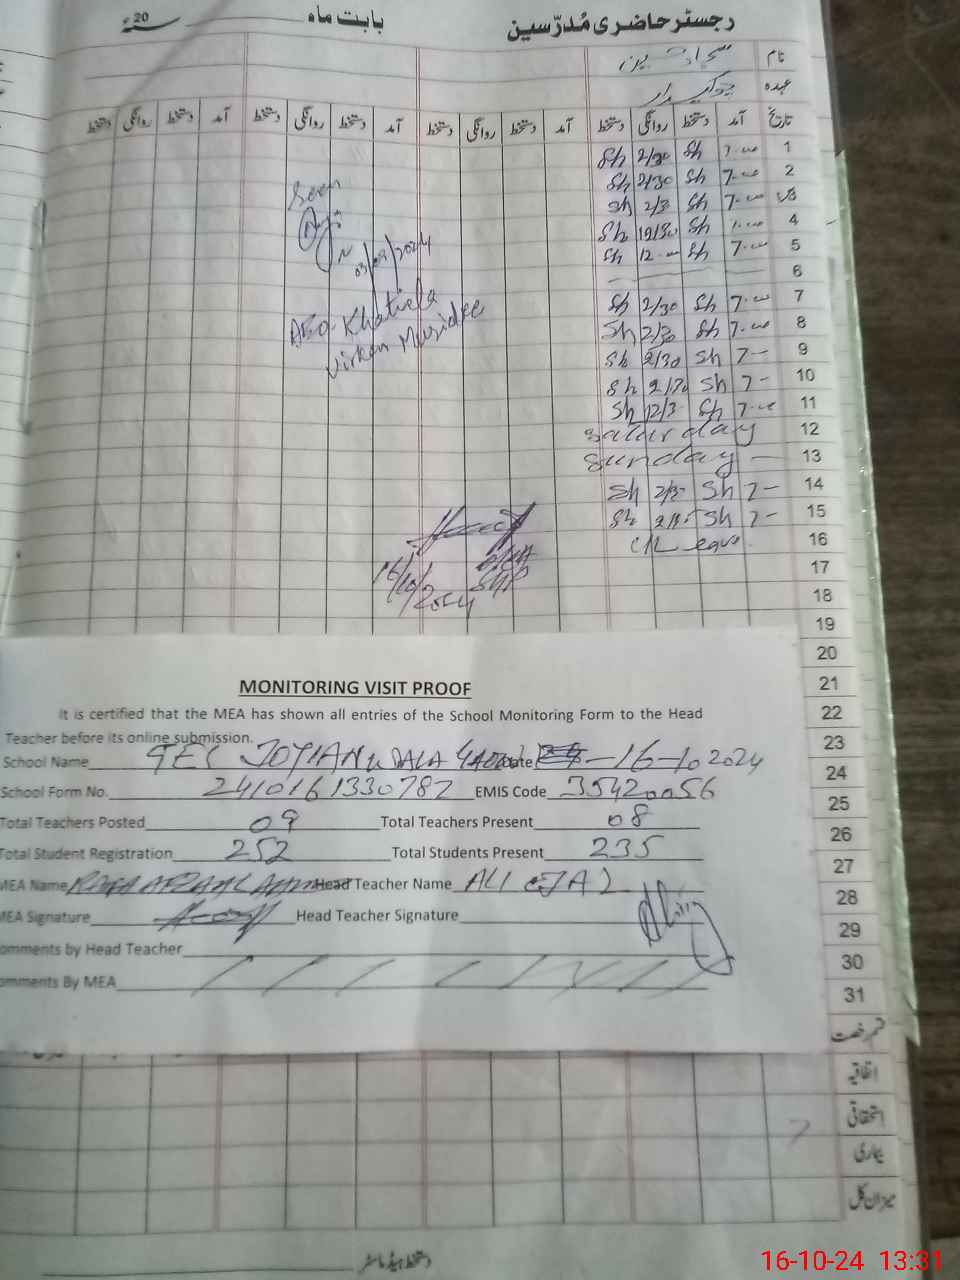 رجسٹر حاضری مُدرّسین بابت ماہ 20ء
نام
عہدہ چوکیدار
تاریخ آمد دستخط روانگی دستخط آمد دستخط روانگی دستخط آمد دستخط روانگی دستخط آمد دستخط روانگی دستخط
1 7-00 Sh 2/30 Sh
2 7-00 Sh 2/30 Sh
3 7-00 Sh 2/3 Sh
4 Sh Sh
5 7-00 Sh 12-00 Sh
6
7 7-00 Sh 2/30 Sh
8 7-00 Sh 2/30 Sh
9 7- Sh 2/30 Sh
10 7- Sh Sh
11 7-00 Sh 12/3 Sh
12 Saturday
13 Sunday -
14 7- Sh 2/3 Sh
15 7- Sh Sh
16 C/Leave
17
18
19
20
21
22
23
24
25
26
27
28
29
30
31
Seen
03/09/2024
AEO-Khatiala
Virkan
16/10/2024
MONITORING VISIT PROOF
It is certified that the MEA has shown all entries of the School Monitoring Form to the Head
Teacher before its online submission.
School Name Date 16-10 2024
School Form No. 2410161330782 EMIS Code 35420056
Total Teachers Posted 09 Total Teachers Present 08
Total Student Registration 252 Total Students Present 235
MEA Name Head Teacher Name ALI
MEA Signature Head Teacher Signature
omments by Head Teacher
omments By MEA
قسم رخصت
اتفاقیہ
استحقاقی
بیماری
میزان کل
دستخط ہیڈ ماسٹر
16-10-24 13:31